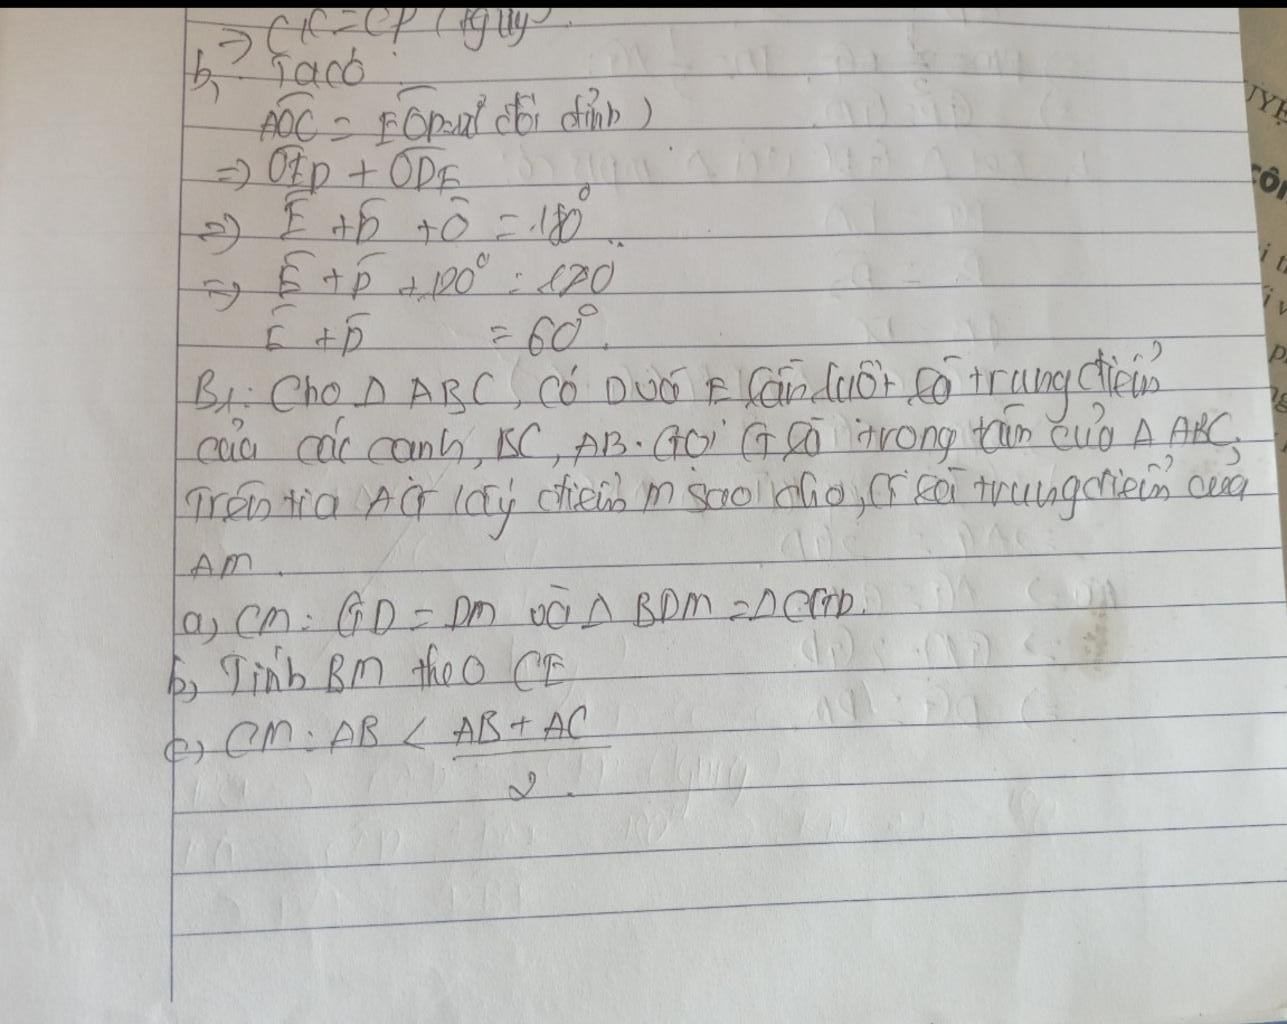 => CK = CP (
b, Ta có
AOC = EOD (đối đỉnh)
=> OED + ODE
=> E + D + O = 180°
=> E + D + 120° = 180
E + D = 60°.
B1: Cho Δ ABC, có D và E lần lượt là trung điểm
của các cạnh, BC, AB. Gọi G là trong tâm của Δ ABC.
Trên tia AG lấy điểm M sao cho, G là trung điểm của
AM.
a, CM: GD = DM và Δ BDM = Δ CGD.
b, Tính BM theo CE
c, CM: AB < AB + AC
2.